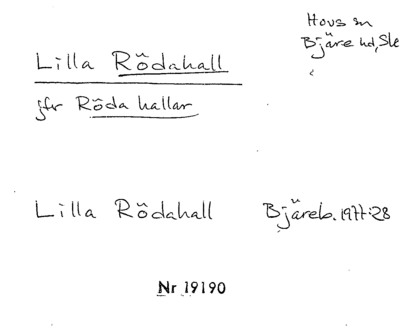 Hovs sn
Bjäre hd, Skå
Lilla Rödahall
jfr Röda hallar
Lilla Rödahall Bjäreb. 1977:28
Nr 19190